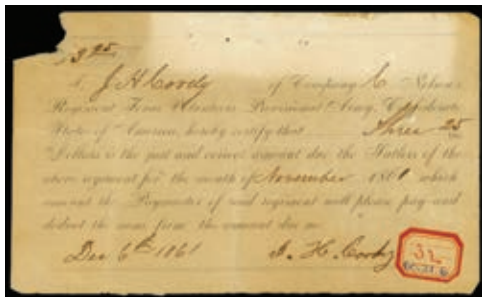 $3 25
I, J H Cordy of Company C Nelson's
Regiment Texas Volunteers Provisional Army, Confederate
States of America, hereby certify that Three 25
Dollars is the just and correct amount due the Sutlers of the
above regiment for the month of November 1861 which
amount the Paymaster of said regiment will please pay and
deduct the same from the amount due me.
Dec 6th 1861 J. H. Cordy